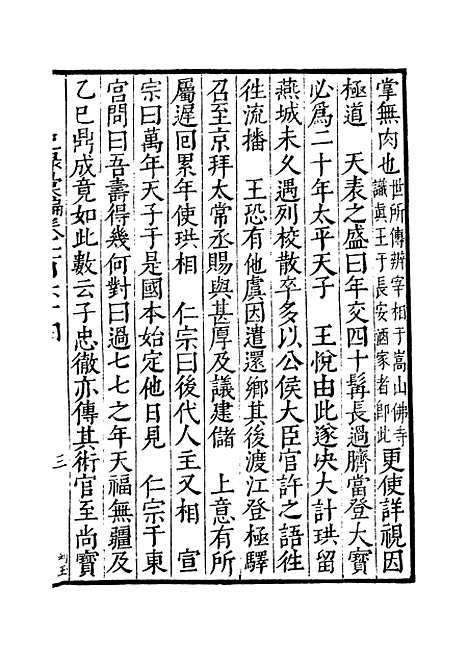 掌無肉也世所傳辨宰相于嵩山佛寺
識眞王于長安酒家者即此更使詳視因
極道　天表之盛曰年交四十髯長過臍當登大寶
必爲二十年太平天子　王悅由此遂决大計珙留
燕城未久遇列校散卒多以公侯大臣官許之語徃
徃流播　王恐有他虞因遣還鄉其後渡江登極驛
召至京拜太常丞賜與甚厚及議建儲　上意有所
屬遲回累年使珙相　仁宗曰後代人主又相　宣
宗曰萬年天子于是國本始定他日見　仁宗于東
宮問曰吾壽得幾何對曰過七七之年天福無疆及
乙巳鼎成竟如此數云子忠徹亦傳其術官至尚寶
三